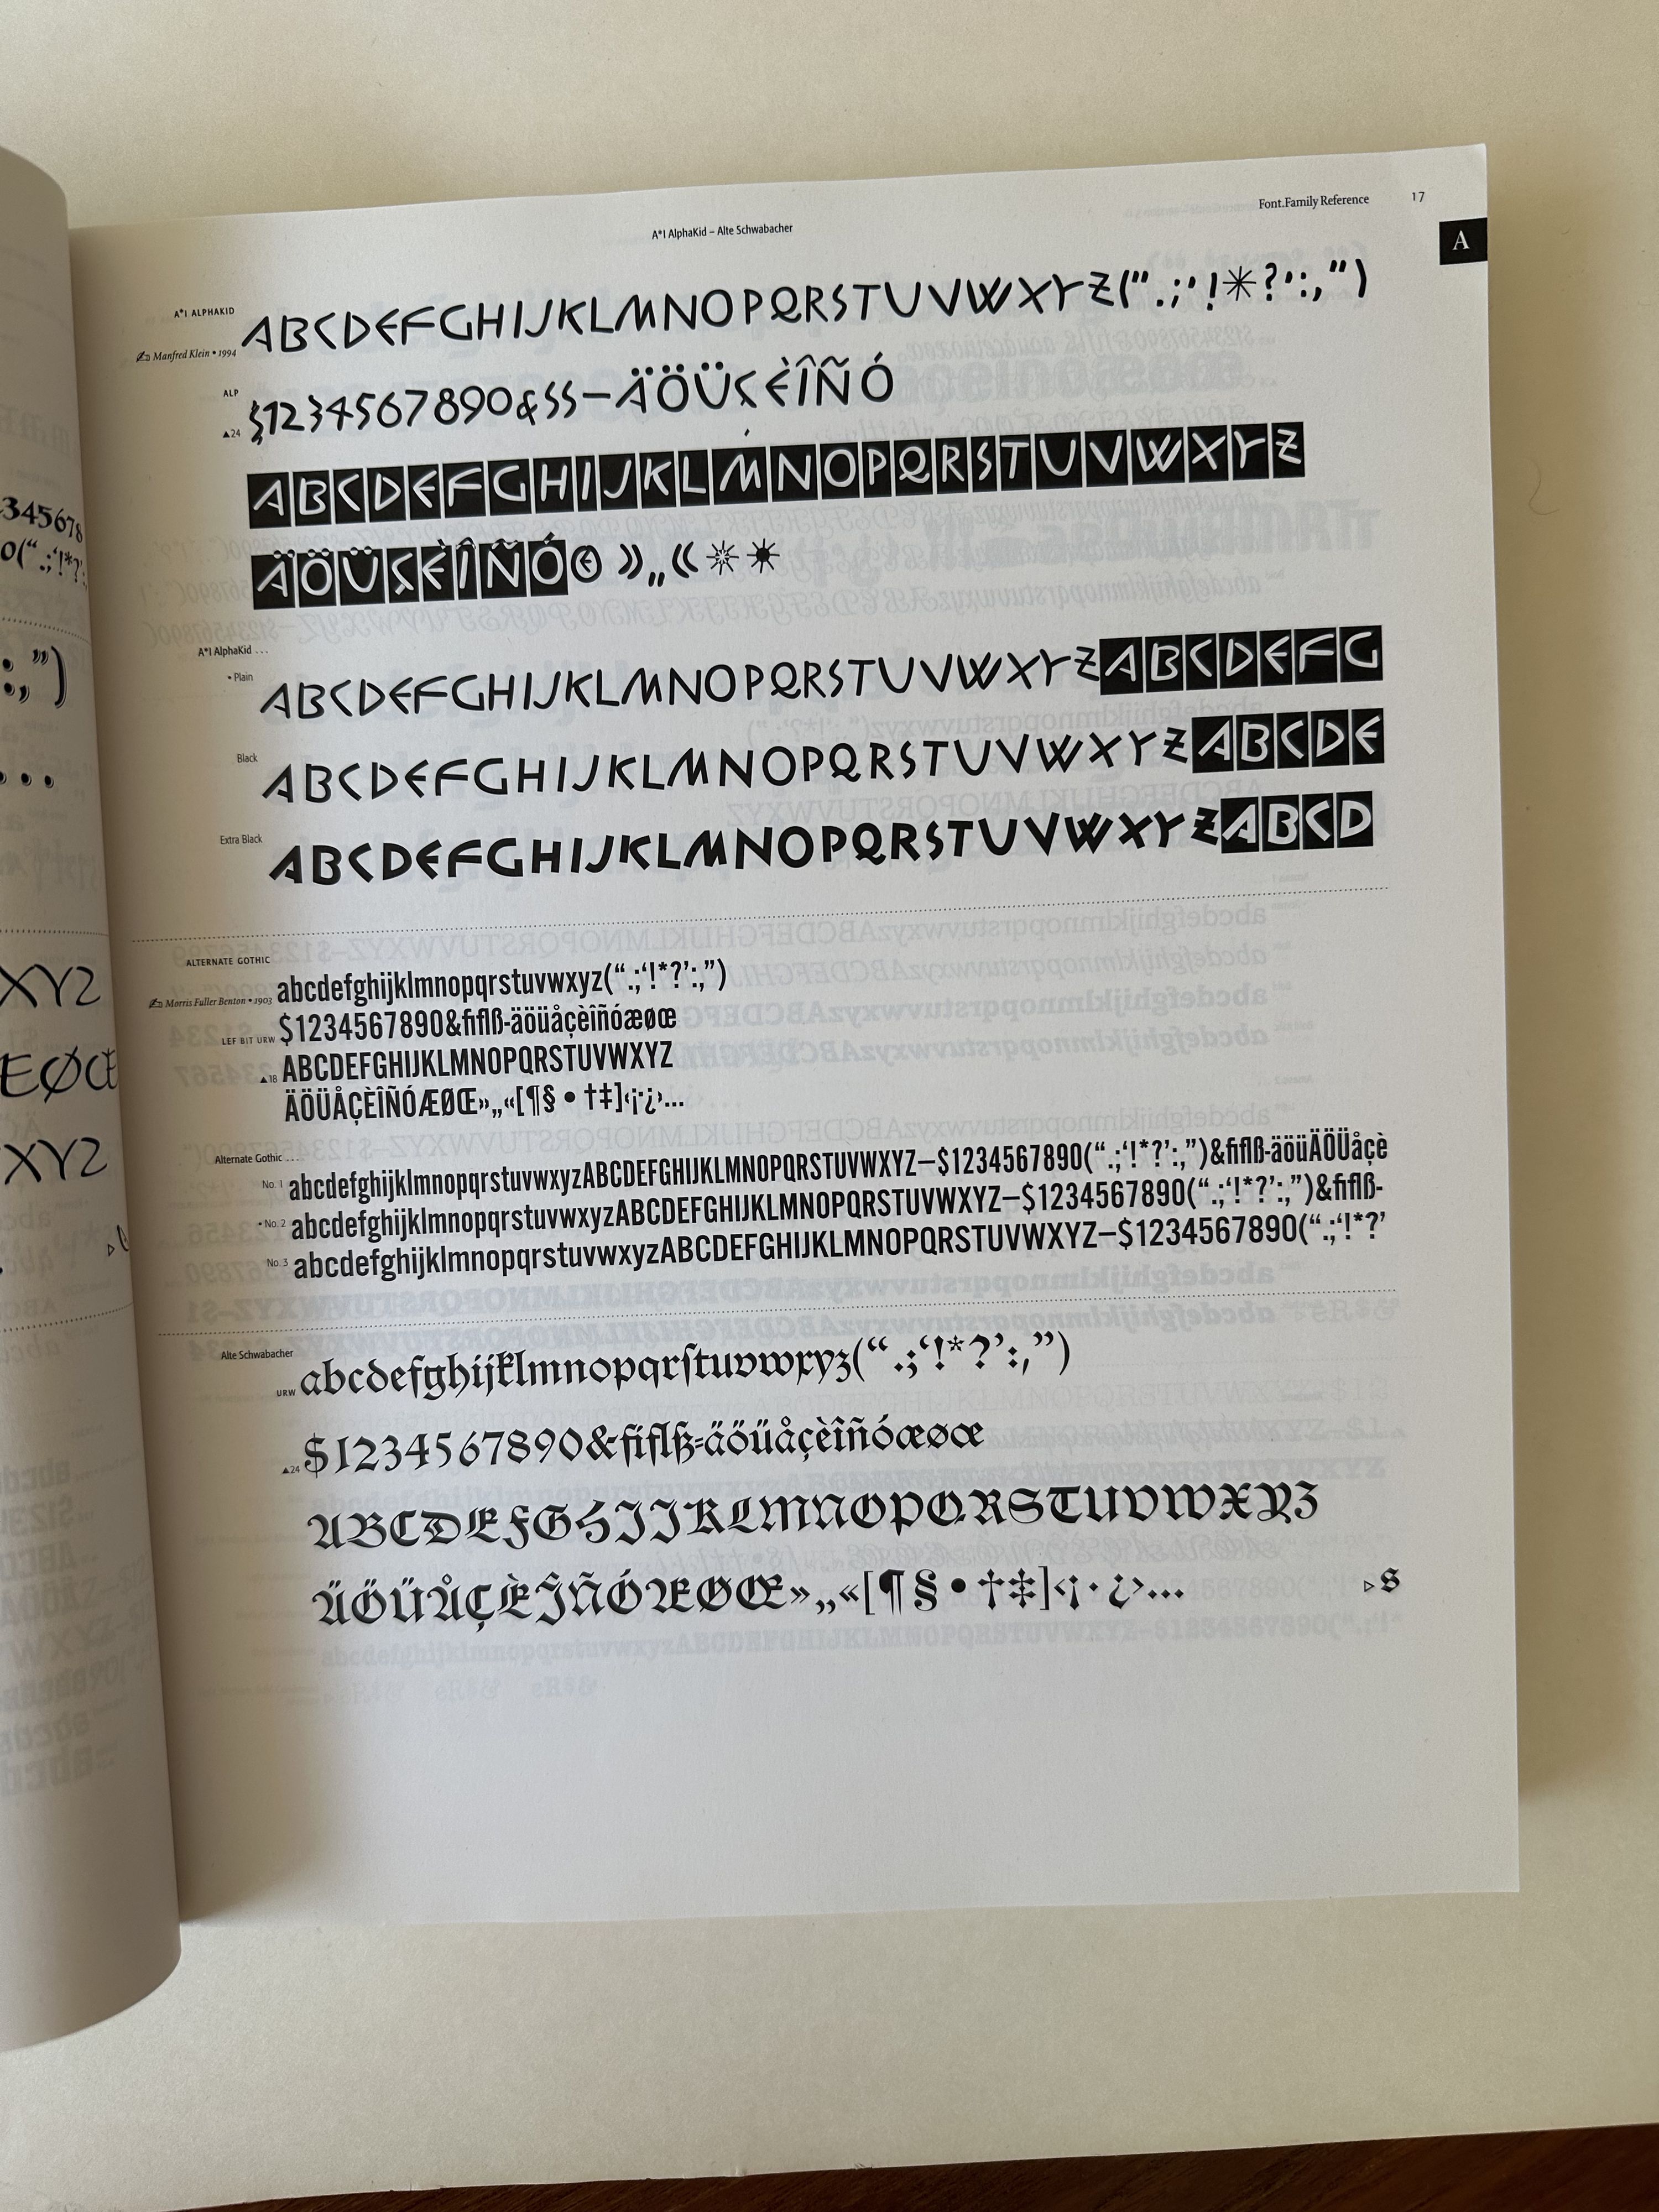 Font.Family Reference 17
A*I AlphaKid – Alte Schwabacher
A
A*I ALPHAKID
ABCDEFGHIJKLMNOPQRSTUVWXYZ(“.;‘!*?’:,”)
Manfred Klein • 1994
ALP
$1234567890&SS–ÄÖÜÇÈÎÑÓ
▲24
ABCDEFGHIJKLMNOPQRSTUVWXYZ
ÄÖÜÇÈÎÑÓ© »„«
A*I AlphaKid ...
• Plain
ABCDEFGHIJKLMNOPQRSTUVWXYZABCDEFG
Black
ABCDEFGHIJKLMNOPQRSTUVWXYZABCDE
Extra Black
ABCDEFGHIJKLMNOPQRSTUVWXYZABCD
ALTERNATE GOTHIC
abcdefghijklmnopqrstuvwxyz(“.;‘!*?’:,”)
Morris Fuller Benton • 1903
$1234567890&fiflß-äöüåçèîñóæøœ
LEF BIT URW
ABCDEFGHIJKLMNOPQRSTUVWXYZ
▲18
ÄÖÜÅÇÈÎÑÓÆØŒ»„«[¶§•†‡]‹¡·¿›...
Alternate Gothic ...
No. 1 abcdefghijklmnopqrstuvwxyzABCDEFGHIJKLMNOPQRSTUVWXYZ–$1234567890(“.;‘!*?’:,”)&fiflß-äöüÄÖÜåçè
• No. 2 abcdefghijklmnopqrstuvwxyzABCDEFGHIJKLMNOPQRSTUVWXYZ–$1234567890(“.;‘!*?’:,”)&fiflß-
No. 3 abcdefghijklmnopqrstuvwxyzABCDEFGHIJKLMNOPQRSTUVWXYZ–$1234567890(“.;‘!*?’
Alte Schwabacher
abcdefghijklmnopqrſtuvwxyz(“.;‘!*?’:,”)
URW
$1234567890&fiflß-äöüåçèîñóæøœ
▲24
ABCDEFGHIJKLMNOPQRSTUVWXYZ
ÄÖÜÅÇÈÎÑÓÆØŒ»„«[¶§•†‡]‹¡·¿›...
▷s